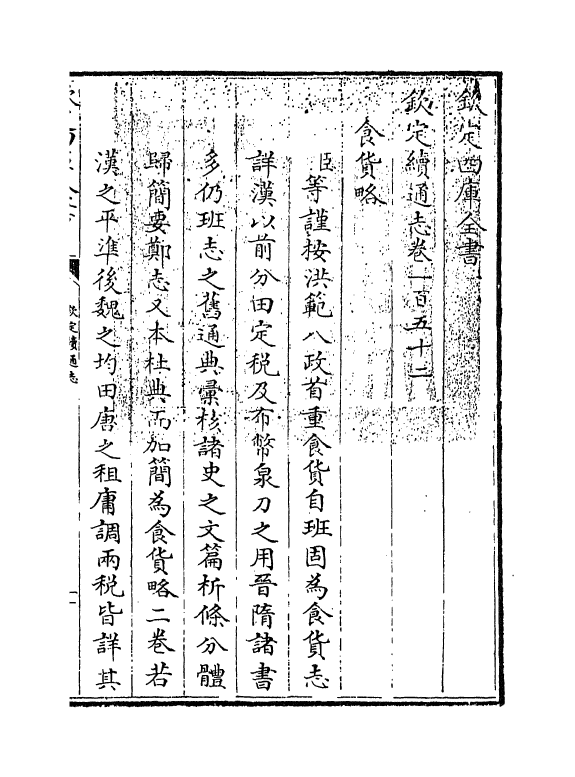 欽定四庫全書
欽定續通志卷一百五十二
食貨略
臣等謹按洪範八政首重食貨自班固為食貨志
詳漢以前分田定稅及布幣泉刀之用晉隋諸書
多仍班志之舊通典彙核諸史之文篇析條分體
歸簡要鄭志又本杜典而加簡為食貨略二卷若
漢之平準後魏之均田唐之租庸調兩稅皆詳其
欽定續通志